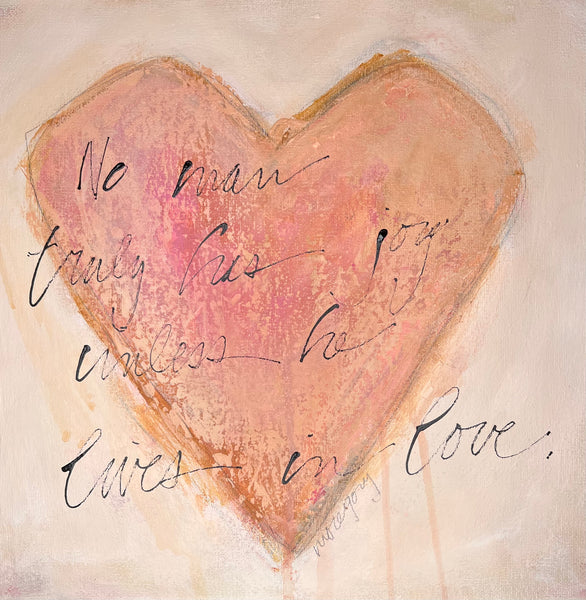 No man
truly has joy
unless he
lives in love.